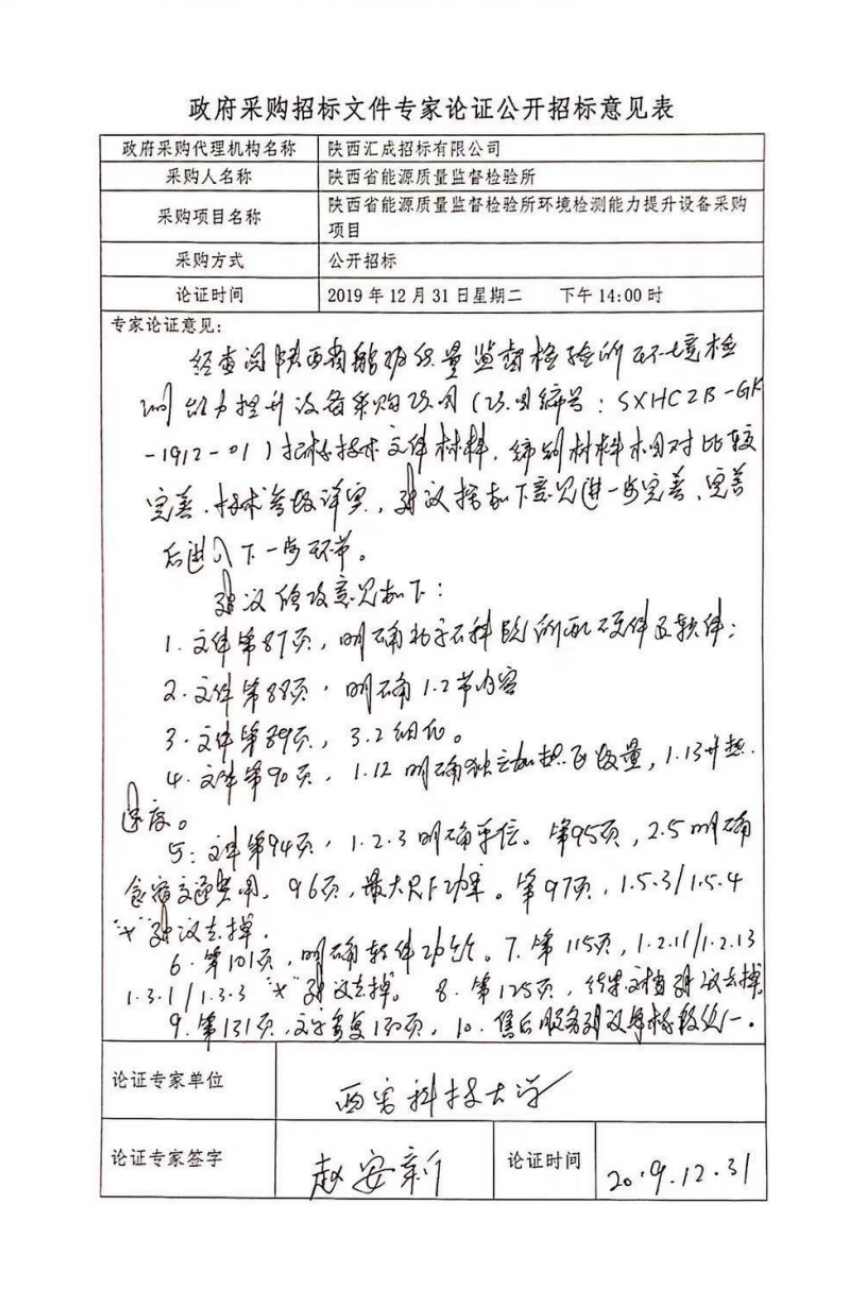 政府采购招标文件专家论证公开招标意见表
政府采购代理机构名称 陕西汇成招标有限公司
采购人名称 陕西省能源质量监督检验所
采购项目名称 陕西省能源质量监督检验所环境检测能力提升设备采购
项目
采购方式 公开招标
论证时间 2019年12月31日星期二 下午14:00时
专家论证意见：
经查阅陕西省能源质量监督检验所环境检
测能力提升设备采购项目（项目编号：SXHCZB-GK
-1912-01）招标技术文件材料，编制材料相对比较
完善、技术参数详实，建议按如下意见进一步完善、完善
后进入下一步环节。
建议修改意见如下：
1. 文件第87页，明确 所配硬件及软件；
2. 文件第88页，明确1.2节内容
3. 文件第89页，3.2细化。
4. 文件第90页，1.12明确独立加热 数量，1.13升温
速度。
5：文件第94页，1.2.3明确单位。第95页，2.5明确
食宿交通费用，96页，最大RF功率。第97页，1.5.3/1.5.4
建议去掉。
6. 第101页，明确软件功能。7. 第115页，1.2.11/1.2.13
1.3.1/1.3.3 建议去掉。8. 第125页， 文档建议去掉，
9. 第131页，文字重复130页，10. 售后服务建议 标段统一。
论证专家单位 西安科技大学
论证专家签字 赵安新 论证时间 2019.12.31